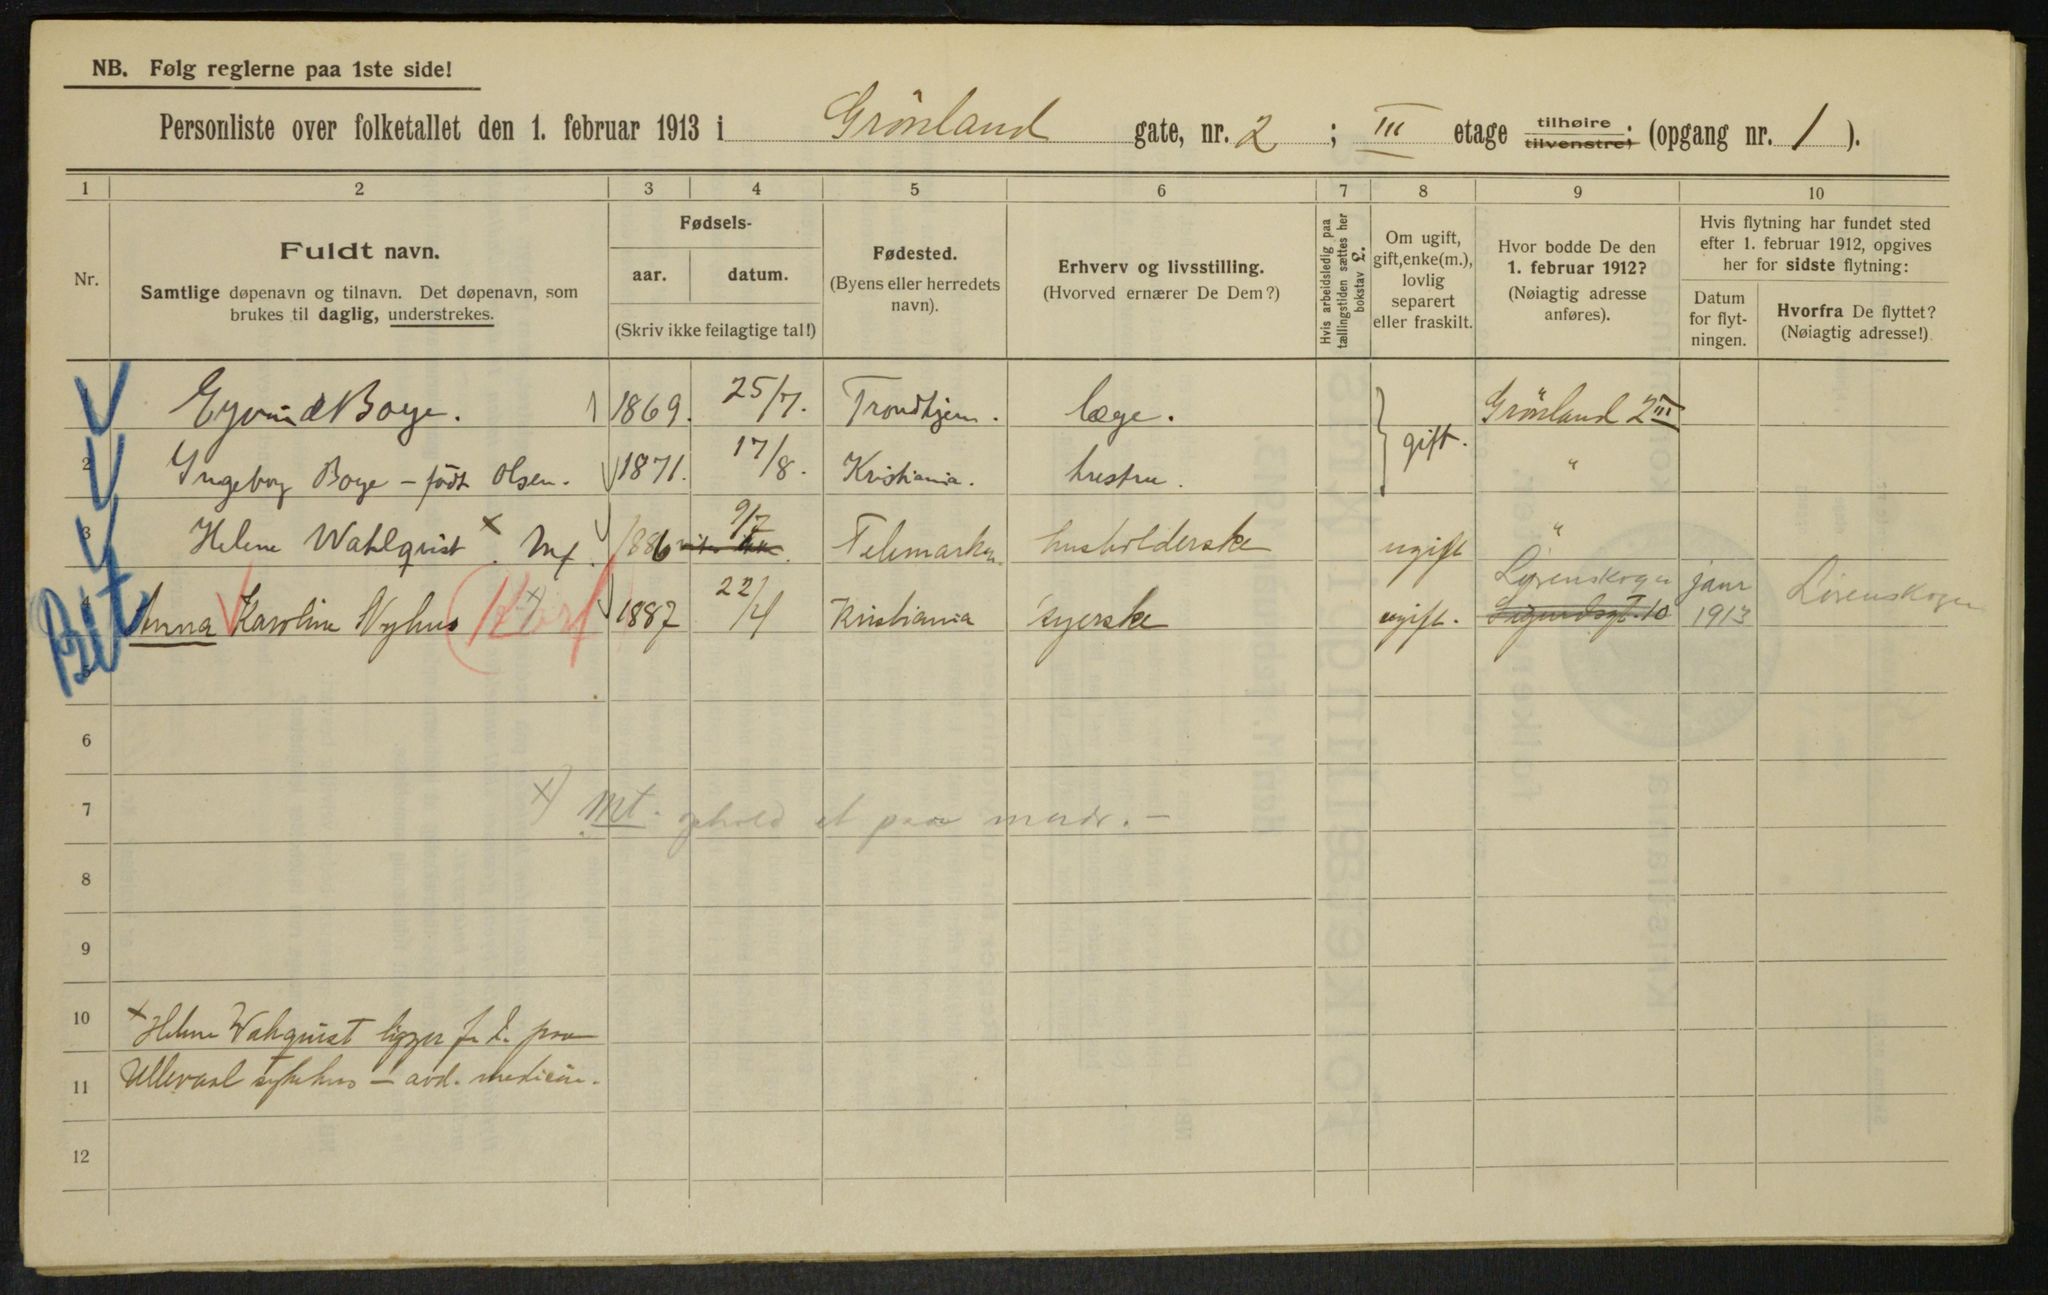 NB. Følg reglerne paa 1ste side!
Personliste over folketallet den 1. februar 1913 i Grönland gate, nr. 2 ; III etage tilhøire tilvenstre; (opgang nr. 1 ).
1 2 3 4 5 6 7 8 9 10
Nr.
Fuldt navn.
Samtlige døpenavn og tilnavn. Det døpenavn, som
brukes til daglig, understrekes.
Fødsels-
aar. datum.
(Skriv ikke feilagtige tal!)
Fødested.
(Byens eller herredets
navn).
Erhverv og livsstilling.
(Hvorved ernærer De Dem?)
Hvis arbeidsledig paa
tællingstiden sættes her
bokstav L.
Om ugift,
gift, enke(m.),
lovlig
separert
eller fraskilt.
Hvor bodde De den
1. februar 1912?
(Nøiagtig adresse
anføres).
Hvis flytning har fundet sted
efter 1. februar 1912, opgives
her for sidste flytning:
Datum
for flyt-
ningen.
Hvorfra De flyttet?
(Nøiagtig adresse!)
Eyvind Boye. 1869. 25/7. Trondhjem. læge. gift. Grönland 2 III
2 Ingeborg Boye - födt Olsen. 1871. 17/8. Kristiania. hustru. "
3 Helene Wahlquist x Mf. 1886 9/7 Telemarken husholderske ugift "
4 Anna Karoline Nyhus x) 1887 22/4 Kristiania syerske ugift. Lørenskogen Sigurdsgt. 10 janr 1913 Lørenskogen
Bet
5
6
7 x) Mt. ophold et paar mndr. -
8
9
10 x Helene Wahquist ligger f. t. paa
11 Ullevaal sykehus - avd. medicin.
12